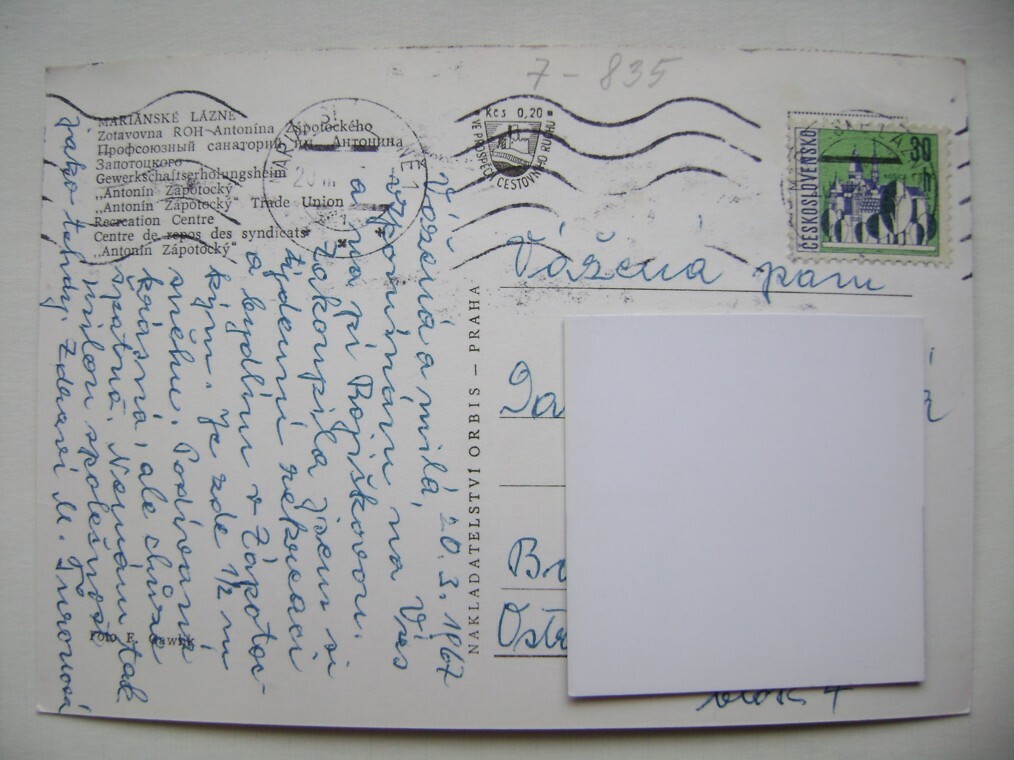 7-835
MARIÁNSKÉ LÁZNĚ
Zotavovna ROH-Antonína Zápotockého
Профсоюзный санаторий им. Антонина
Запотоцкого
Gewerkschaftserholungsheim
„Antonín Zápotocký"
„Antonín Zápotocký" Trade Union
Recreation Centre
Centre de repos des syndicats
„Antonín Zápotocký"
Kčs 0,20
VE PROSPĚCH CESTOVNÍHO RUCHU
ČESKOSLOVENSKO
30
Vážená a milá, 20. 3. 1967
vzpomínám na Vás
a na pí Rojíškovou.
Zakoupila jsem si
týdenní rekreaci
a bydlím v Zápotoc-
kým. Je zde 1/2 m
sněhu. Podívaná
krásná, ale chůze
špatná. Nemám tak
milou společnost
jako tehdy. Zdraví M.
Foto E.
NAKLADATELSTVÍ ORBIS – PRAHA
Vážená paní
blok 4